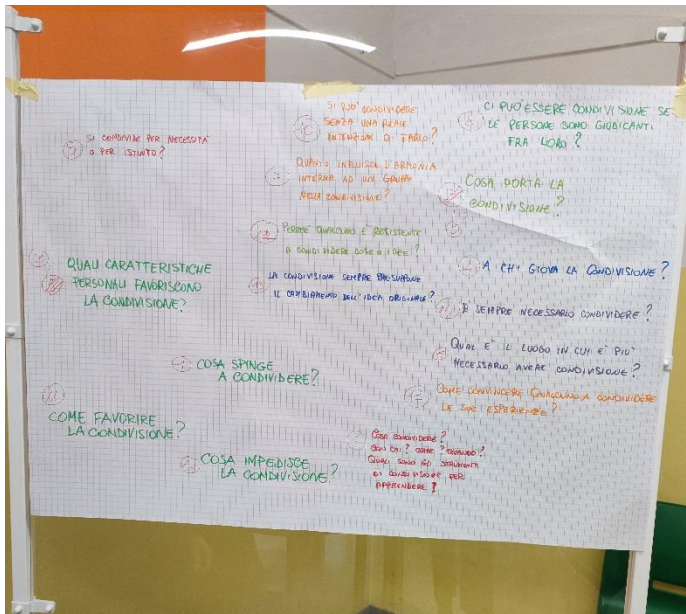 SI CONDIVIDE PER NECESSITÀ
O PER ISTINTO?
SI PUO' CONDIVIDERE
SENZA UNA REALE
INTENZIONE DI FARLO?
CI PUO' ESSERE CONDIVISIONE SE
LE PERSONE SONO GIUDICANTI
FRA LORO?
QUANTO INFLUISCE L'ARMONIA
INTERNA AD UN GRUPPO
NELLA CONDIVISIONE?
COSA PORTA LA
CONDIVISIONE?
PERCHÉ QUALCUNO È RESISTENTE
A CONDIVIDERE COSE O IDEE?
QUALI CARATTERISTICHE
PERSONALI FAVORISCONO
LA CONDIVISIONE?
LA CONDIVISIONE SEMPRE PRESUPPONE
IL CAMBIAMENTO DELL'IDEA ORIGINALE?
A CHI GIOVA LA CONDIVISIONE?
È SEMPRE NECESSARIO CONDIVIDERE?
QUAL È IL LUOGO IN CUI È PIU'
NECESSARIO AVERE CONDIVISIONE?
COSA SPINGE
A CONDIVIDERE?
COME CONVINCERE QUALCUNO A CONDIVIDERE
LE SUE ESPERIENZE?
COME FAVORIRE
LA CONDIVISIONE?
COSA IMPEDISCE
LA CONDIVISIONE?
COSA CONDIVIDERE?
CON CHI? COME? QUANDO?
QUALI SONO GLI STRUMENTI
DI CONDIVISIONE PER
APPRENDERE?